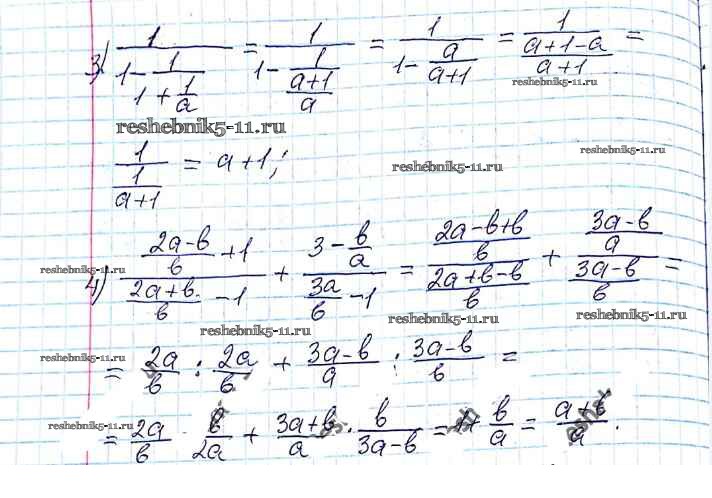 3) 1/(1 - 1/(1 + 1/a)) = 1/(1 - 1/((a+1)/a)) = 1/(1 - a/(a+1)) = 1/((a+1-a)/(a+1)) =
reshebnik5-11.ru
reshebnik5-11.ru
reshebnik5-11.ru
1/(1/(a+1)) = a+1;
reshebnik5-11.ru
4) ((2a-b)/b + 1)/((2a+b)/b - 1) + (3 - b/a)/(3a/b - 1) = ((2a-b+b)/b)/((2a+b-b)/b) + ((3a-b)/a)/((3a-b)/b) =
reshebnik5-11.ru
reshebnik5-11.ru
reshebnik5-11.ru
reshebnik5-11.ru
reshebnik5-11.ru
= 2a/b : 2a/b + (3a-b)/a : (3a-b)/b =
reshebnik5-11.ru
= 2a/b · b/2a + (3a+b)/a · b/(3a-b) = 1 + b/a = (a+b)/a.